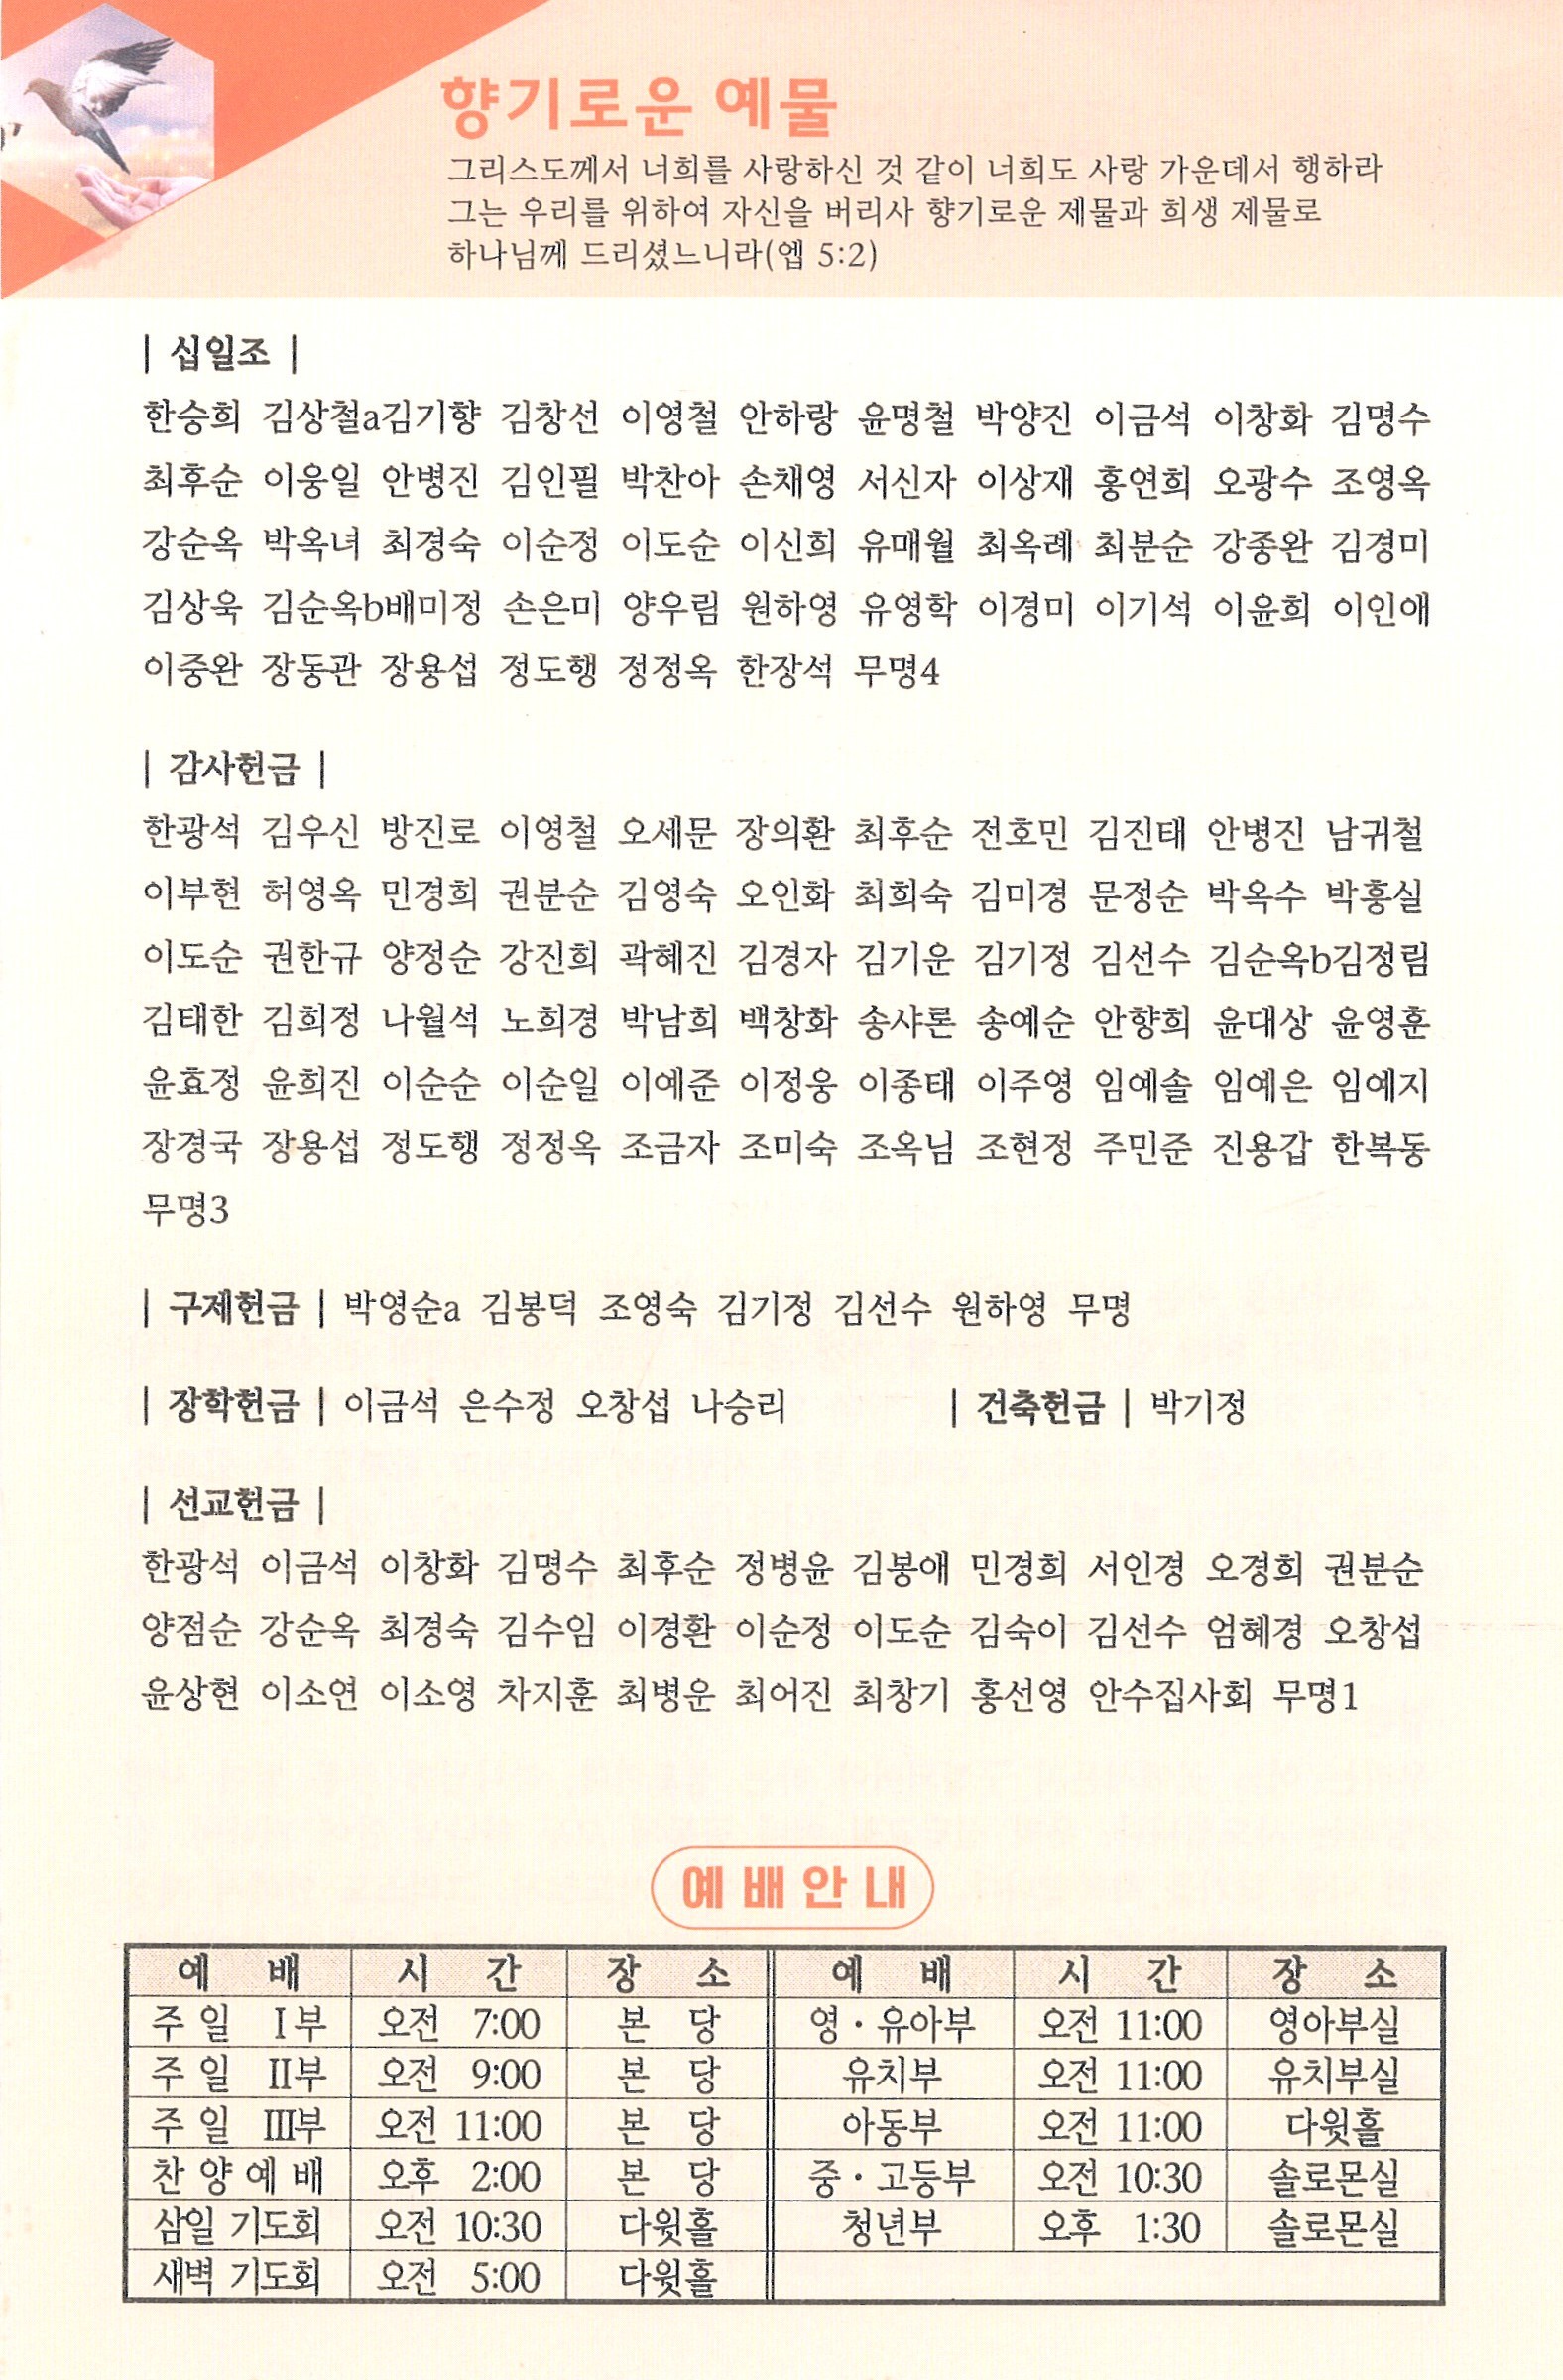 향기로운 예물
그리스도께서 너희를 사랑하신 것 같이 너희도 사랑 가운데서 행하라
그는 우리를 위하여 자신을 버리사 향기로운 제물과 희생 제물로
하나님께 드리셨느니라(엡 5:2)
| 십일조 |
한승희 김상철a김기향 김창선 이영철 안하랑 윤명철 박양진 이금석 이창화 김명수
최후순 이웅일 안병진 김인필 박찬아 손채영 서신자 이상재 홍연희 오광수 조영옥
강순옥 박옥녀 최경숙 이순정 이도순 이신희 유매월 최옥례 최분순 강종완 김경미
김상욱 김순옥b배미정 손은미 양우림 원하영 유영학 이경미 이기석 이윤희 이인애
이중완 장동관 장용섭 정도행 정정옥 한장석 무명4
| 감사헌금 |
한광석 김우신 방진로 이영철 오세문 장의환 최후순 전호민 김진태 안병진 남귀철
이부현 허영옥 민경희 권분순 김영숙 오인화 최희숙 김미경 문정순 박옥수 박흥실
이도순 권한규 양정순 강진희 곽혜진 김경자 김기운 김기정 김선수 김순옥b김정림
김태한 김희정 나월석 노희경 박남희 백창화 송샤론 송예순 안향희 윤대상 윤영훈
윤효정 윤희진 이순순 이순일 이예준 이정웅 이종태 이주영 임예솔 임예은 임예지
장경국 장용섭 정도행 정정옥 조금자 조미숙 조옥님 조현정 주민준 진용갑 한복동
무명3
| 구제헌금 | 박영순a 김봉덕 조영숙 김기정 김선수 원하영 무명
| 장학헌금 | 이금석 은수정 오창섭 나승리 | 건축헌금 | 박기정
| 선교헌금 |
한광석 이금석 이창화 김명수 최후순 정병윤 김봉애 민경희 서인경 오경희 권분순
양점순 강순옥 최경숙 김수임 이경환 이순정 이도순 김숙이 김선수 엄혜경 오창섭
윤상현 이소연 이소영 차지훈 최병운 최어진 최창기 홍선영 안수집사회 무명1
예배안내
예 배 시 간 장 소 예 배 시 간 장 소
주 일 Ⅰ부 오전 7:00 본 당 영·유아부 오전 11:00 영아부실
주 일 Ⅱ부 오전 9:00 본 당 유치부 오전 11:00 유치부실
주 일 Ⅲ부 오전 11:00 본 당 아동부 오전 11:00 다윗홀
찬 양 예 배 오후 2:00 본 당 중·고등부 오전 10:30 솔로몬실
삼일 기도회 오전 10:30 다윗홀 청년부 오후 1:30 솔로몬실
새벽 기도회 오전 5:00 다윗홀